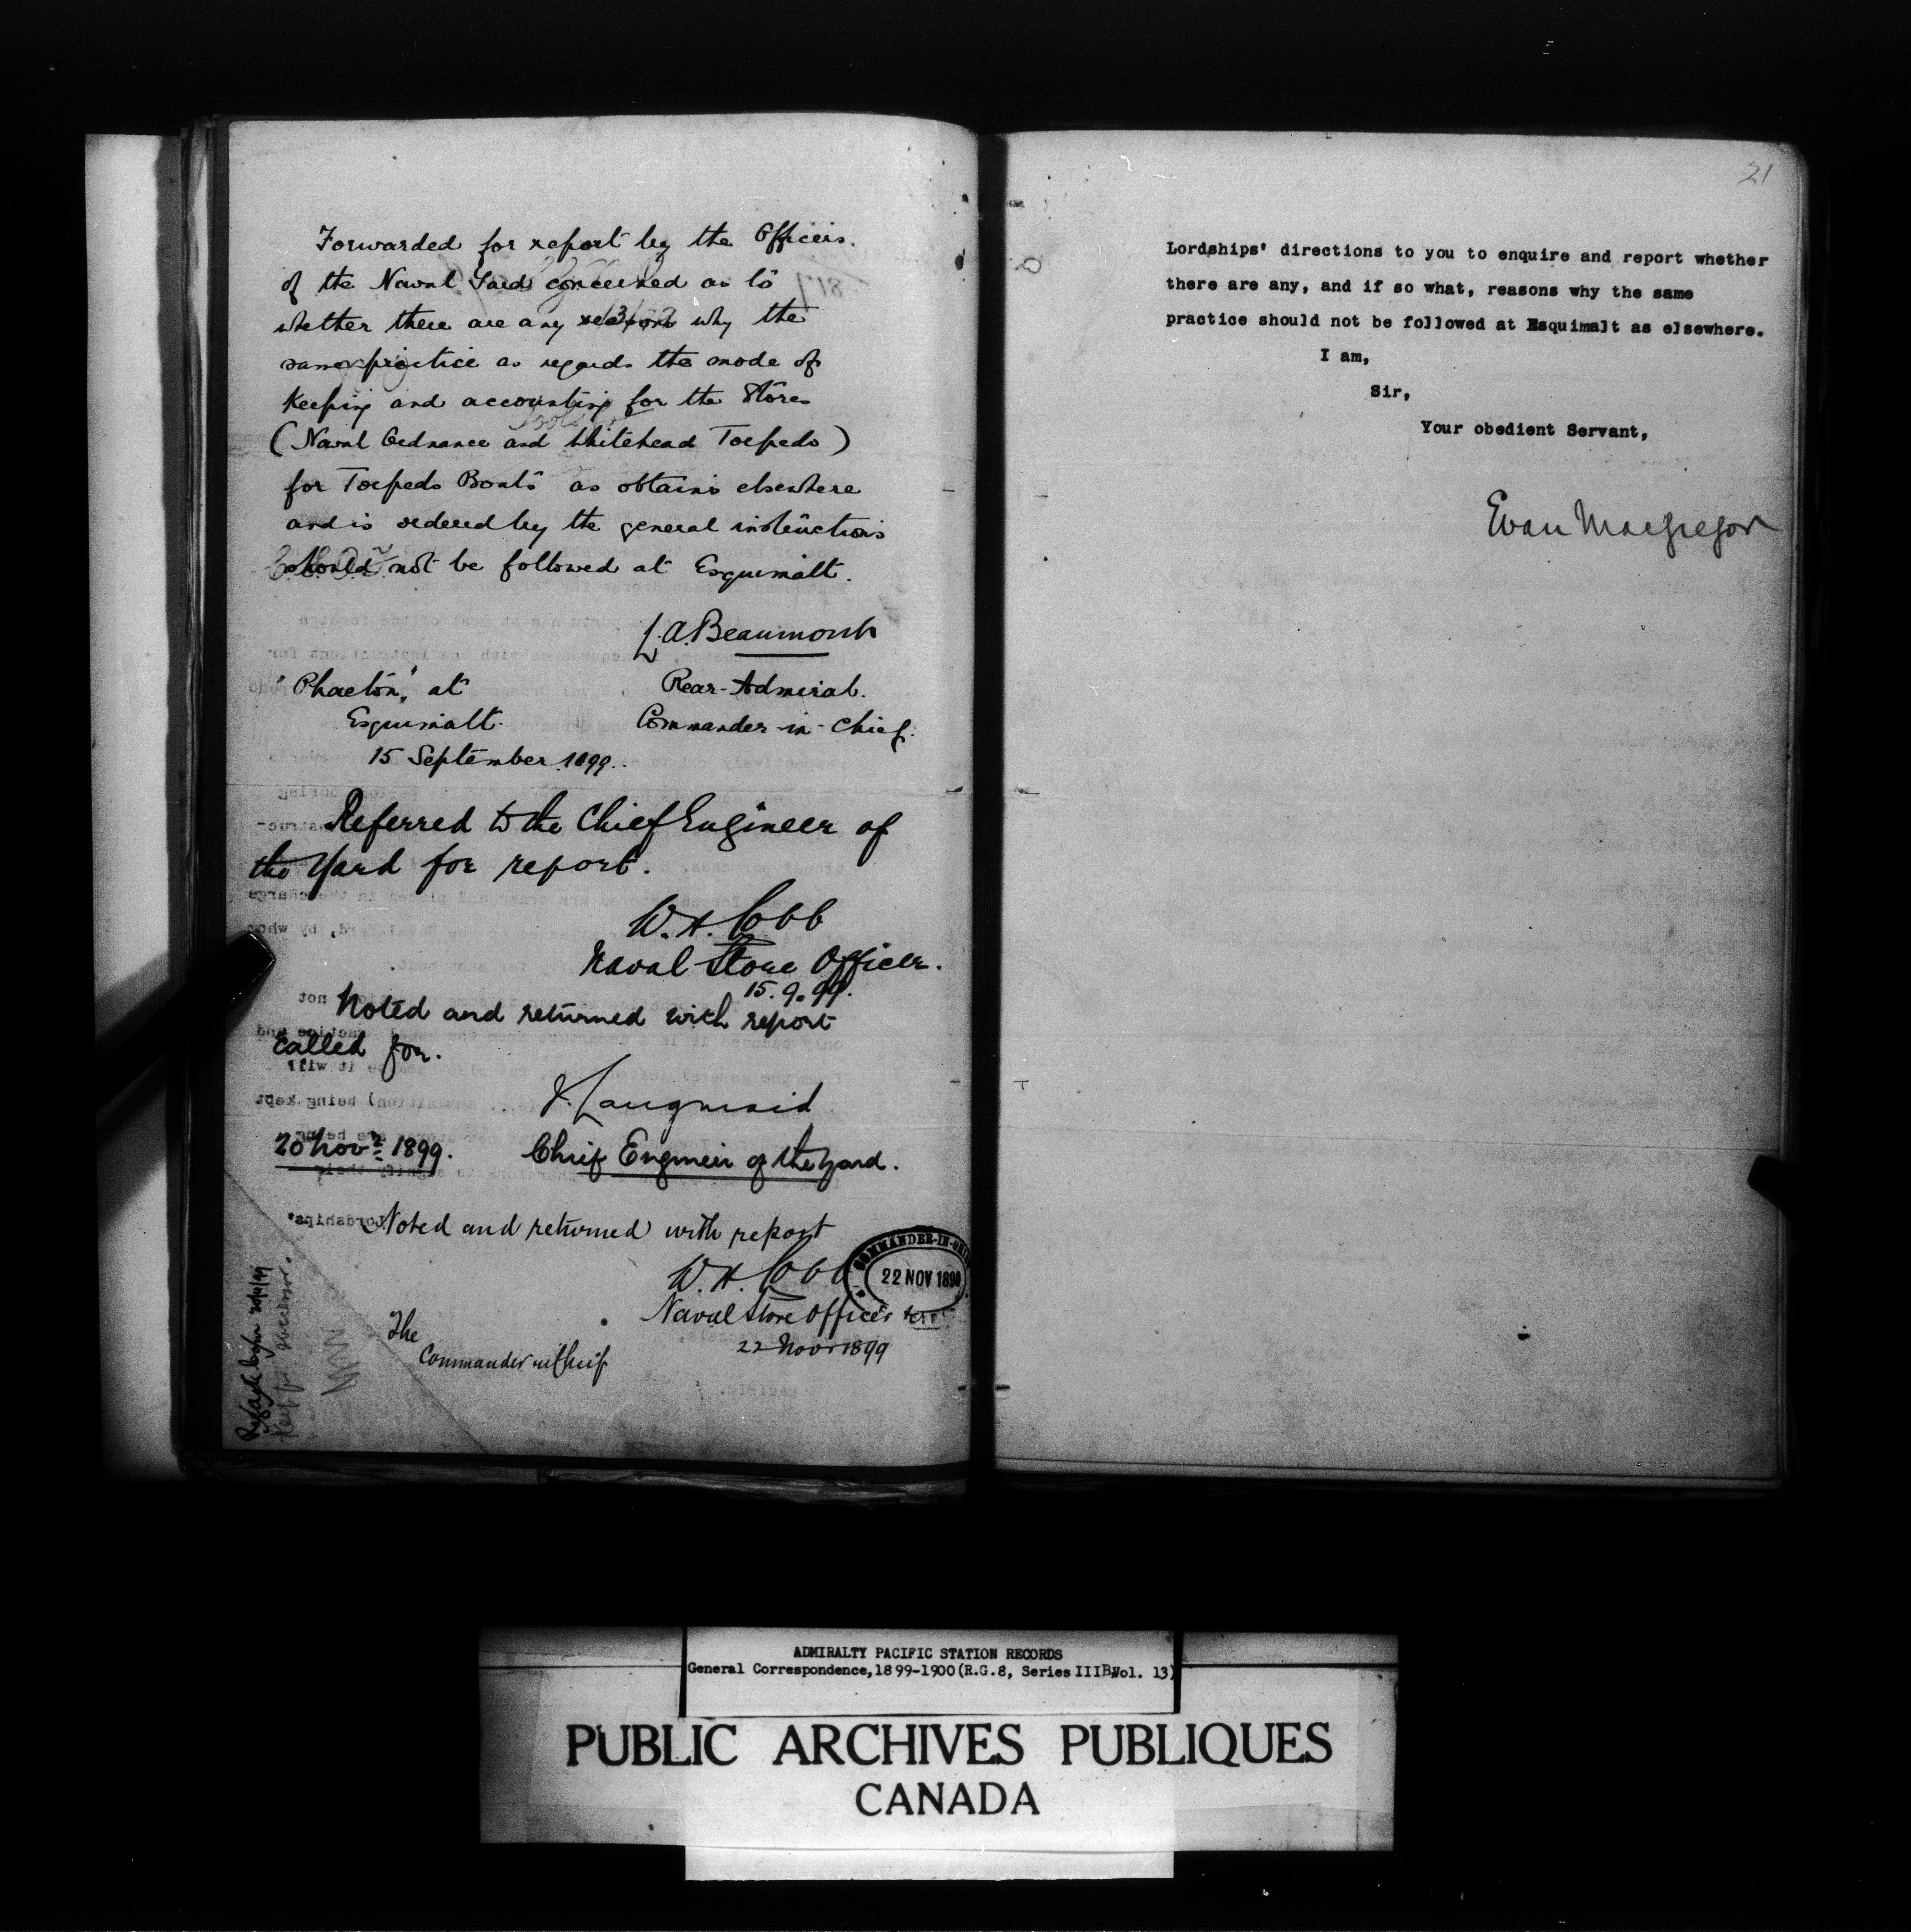 Forwarded for report by the Officers
of the Naval Yards concerned as to
whether there are any reasons why the
same practice as regards the mode of
Keeping and accounting for the Stores
(Naval Ordnance and Whitehead Torpedo)
for Torpedo Boats as obtains elsewhere
and is ordered by the general instructions
should not be followed at Esquimalt.
L.A. Beaumont
"Phaeton," at
Rear-Admiral.
Esquimalt.
Commander-in-Chief.
15 September 1899.
Referred to the Chief Engineer of
the Yard for report.
W.H. Cobb
Naval Store Officer.
15.9.99.
Noted and returned with report
called for.
J. Langmaid
20 Novr 1899.
Chief Engineer of the Yard.
Noted and returned with report
W.H. Cobb
Naval Store Officer
22 Novr 1899
The
Commander in Chief
COMMANDER-IN-CHIEF
22 NOV 1899
21
Lordships' directions to you to enquire and report whether
there are any, and if so what, reasons why the same
practice should not be followed at Esquimalt as elsewhere.
I am,
Sir,
Your obedient Servant,
Evan Macgregor
ADMIRALTY PACIFIC STATION RECORDS
General Correspondence,1899-1900(R.G.8, Series IIIB,Vol. 13)
PUBLIC ARCHIVES PUBLIQUES
CANADA